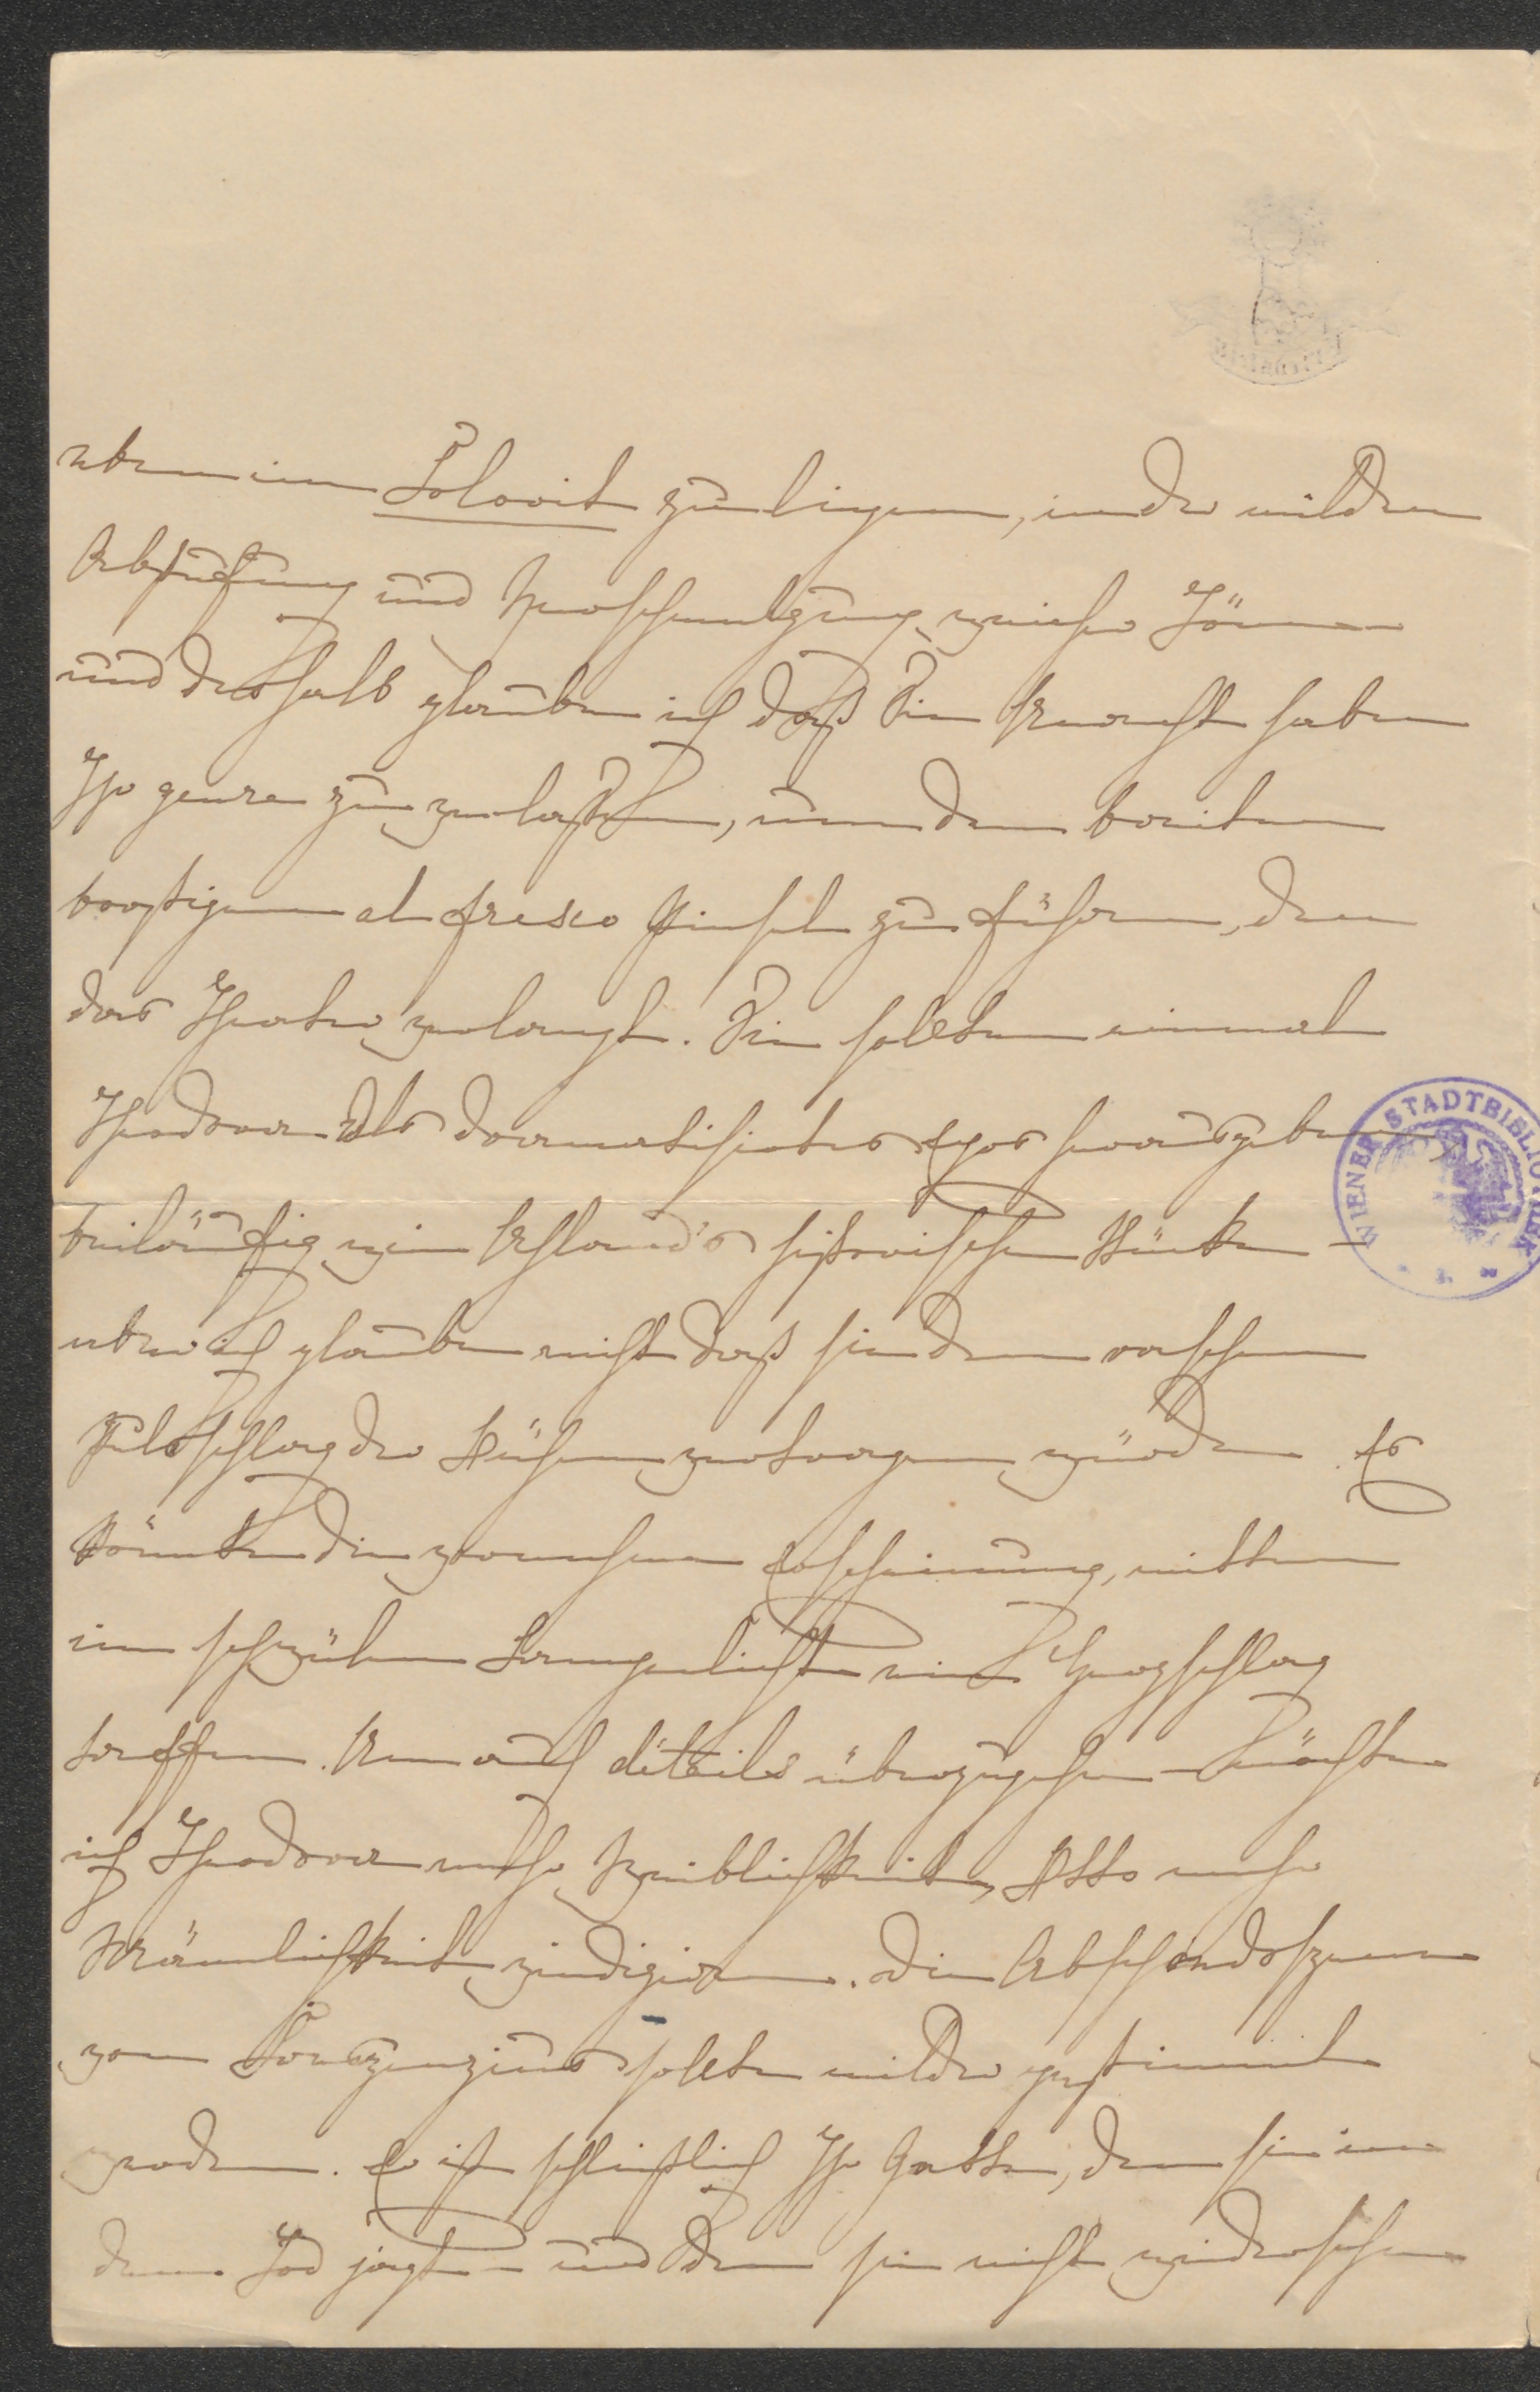 eben im Kolorit zu liegen, in der milden
Abstufung und Verschmelzung weicher Töne
und deshalb glaube ich daß Sie Unrecht haben
Ihr genre zu verlassen, um den breiten
borstigen al fresco Pinsel zu führen, den
das Theater verlangt. Sie sollten einmal
Theodora als dramatisirtes Epos herausgeben
beiläufig wie Uhland's historische Stücke –
aber ich glaube nicht daß sie den raschen
Pulsschlag der Bühne vertragen würde. Es
könnte die vornehme Erscheinung, mitten
im schwülen Lampenlicht ein Herzschlag
treffen. Um auf détails überzugehen – möchte
ich Theodora mehr Weiblichkeit, Otto mehr
Männlichkeit vindiziren. Die Abschiedsszene
von Kreszenzius sollte milder gestimmt
werden. Er ist schließlich Ihr Gatte, den sie in
den Tod jagt – und den sie nicht wiedersehen
WIENER STADTBIBLIOTHEK